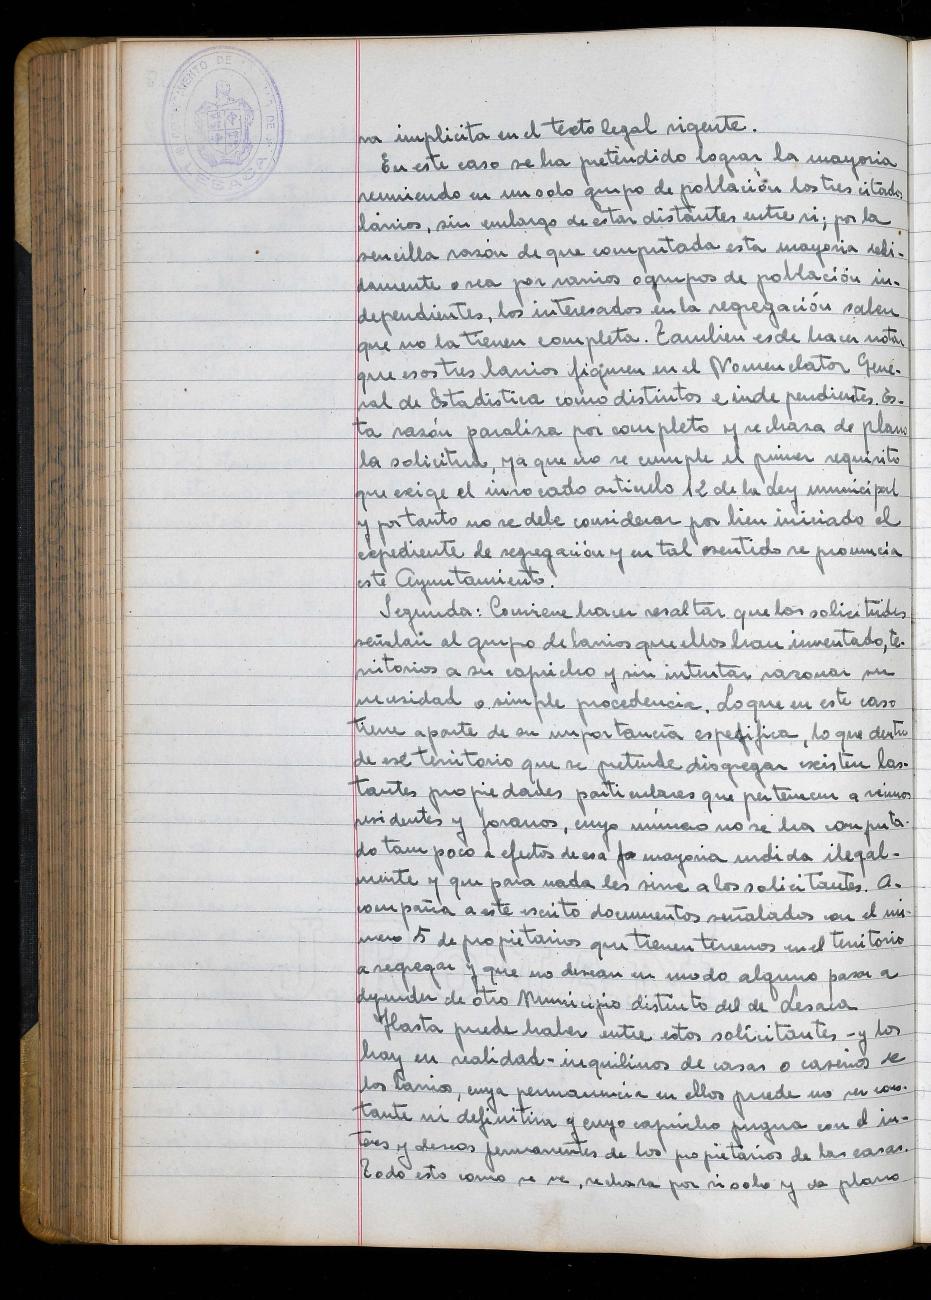 AYUNTAMIENTO DE
LESACA
va implicita en el texto legal vigente.
En este caso se ha pretendido lograr la mayoria
reuniendo en un solo grupo de población los tres citados
barrios, sin embargo de estar distantes entre si; por la
sencilla razón de que computada esta mayoria debi-
damente o sea por barrios o grupos de población in-
dependientes, los interesados en la segregación saben
que no la tienen completa. Tambien es de hacer notar
que esos tres barrios figuren en el Nomenclator Gene-
ral de Estadistica como distintos e independientes. Es-
ta razón paraliza por completo y rechaza de plano
la solicitud, ya que no se cumple el primer requisito
que exige el invocado articulo 12 de la Ley municipal
y por tanto no se debe considerar por bien iniciado el
expediente de segregación y en tal sentido se pronuncia
este Ayuntamiento.
Segunda: Conviene hacer resaltar que los solicitudes
señalan al grupo de barrios que ellos han inventado, te-
rritorios a su capricho y sin intentar razonar su
necesidad o simple procedencia. Lo que en este caso
tiene aparte de su importancia espefifica, lo que dentro
de ese territorio que se pretende disgregar existen bas-
tantes propiedades particulares que pertenecen a vecinos
residentes y foranos, cuyo número no se ha computa-
do tampoco a efectos de esa mayoria medida ilegal-
mente y que para nada les sirve a los solicitantes. A-
compaña a este escrito documentos señalados con el nú-
mero 5 de propietarios que tienen terrenos en el territorio
a segregar y que no desean en modo alguno pasar a
depender de otro Municipio distinto del de Lesaca
Hasta puede haber entre estos solicitantes - y los
hay en realidad - inquilinos de casas o caserios de
los barrios, cuya permanencia en ellos puede no ser cons-
tante ni definitiva y cuyo capricho pugna con el in-
teres y deseos permanentes de los propietarios de las casas.
Todo esto como se ve, rechaza por si solo y da plano